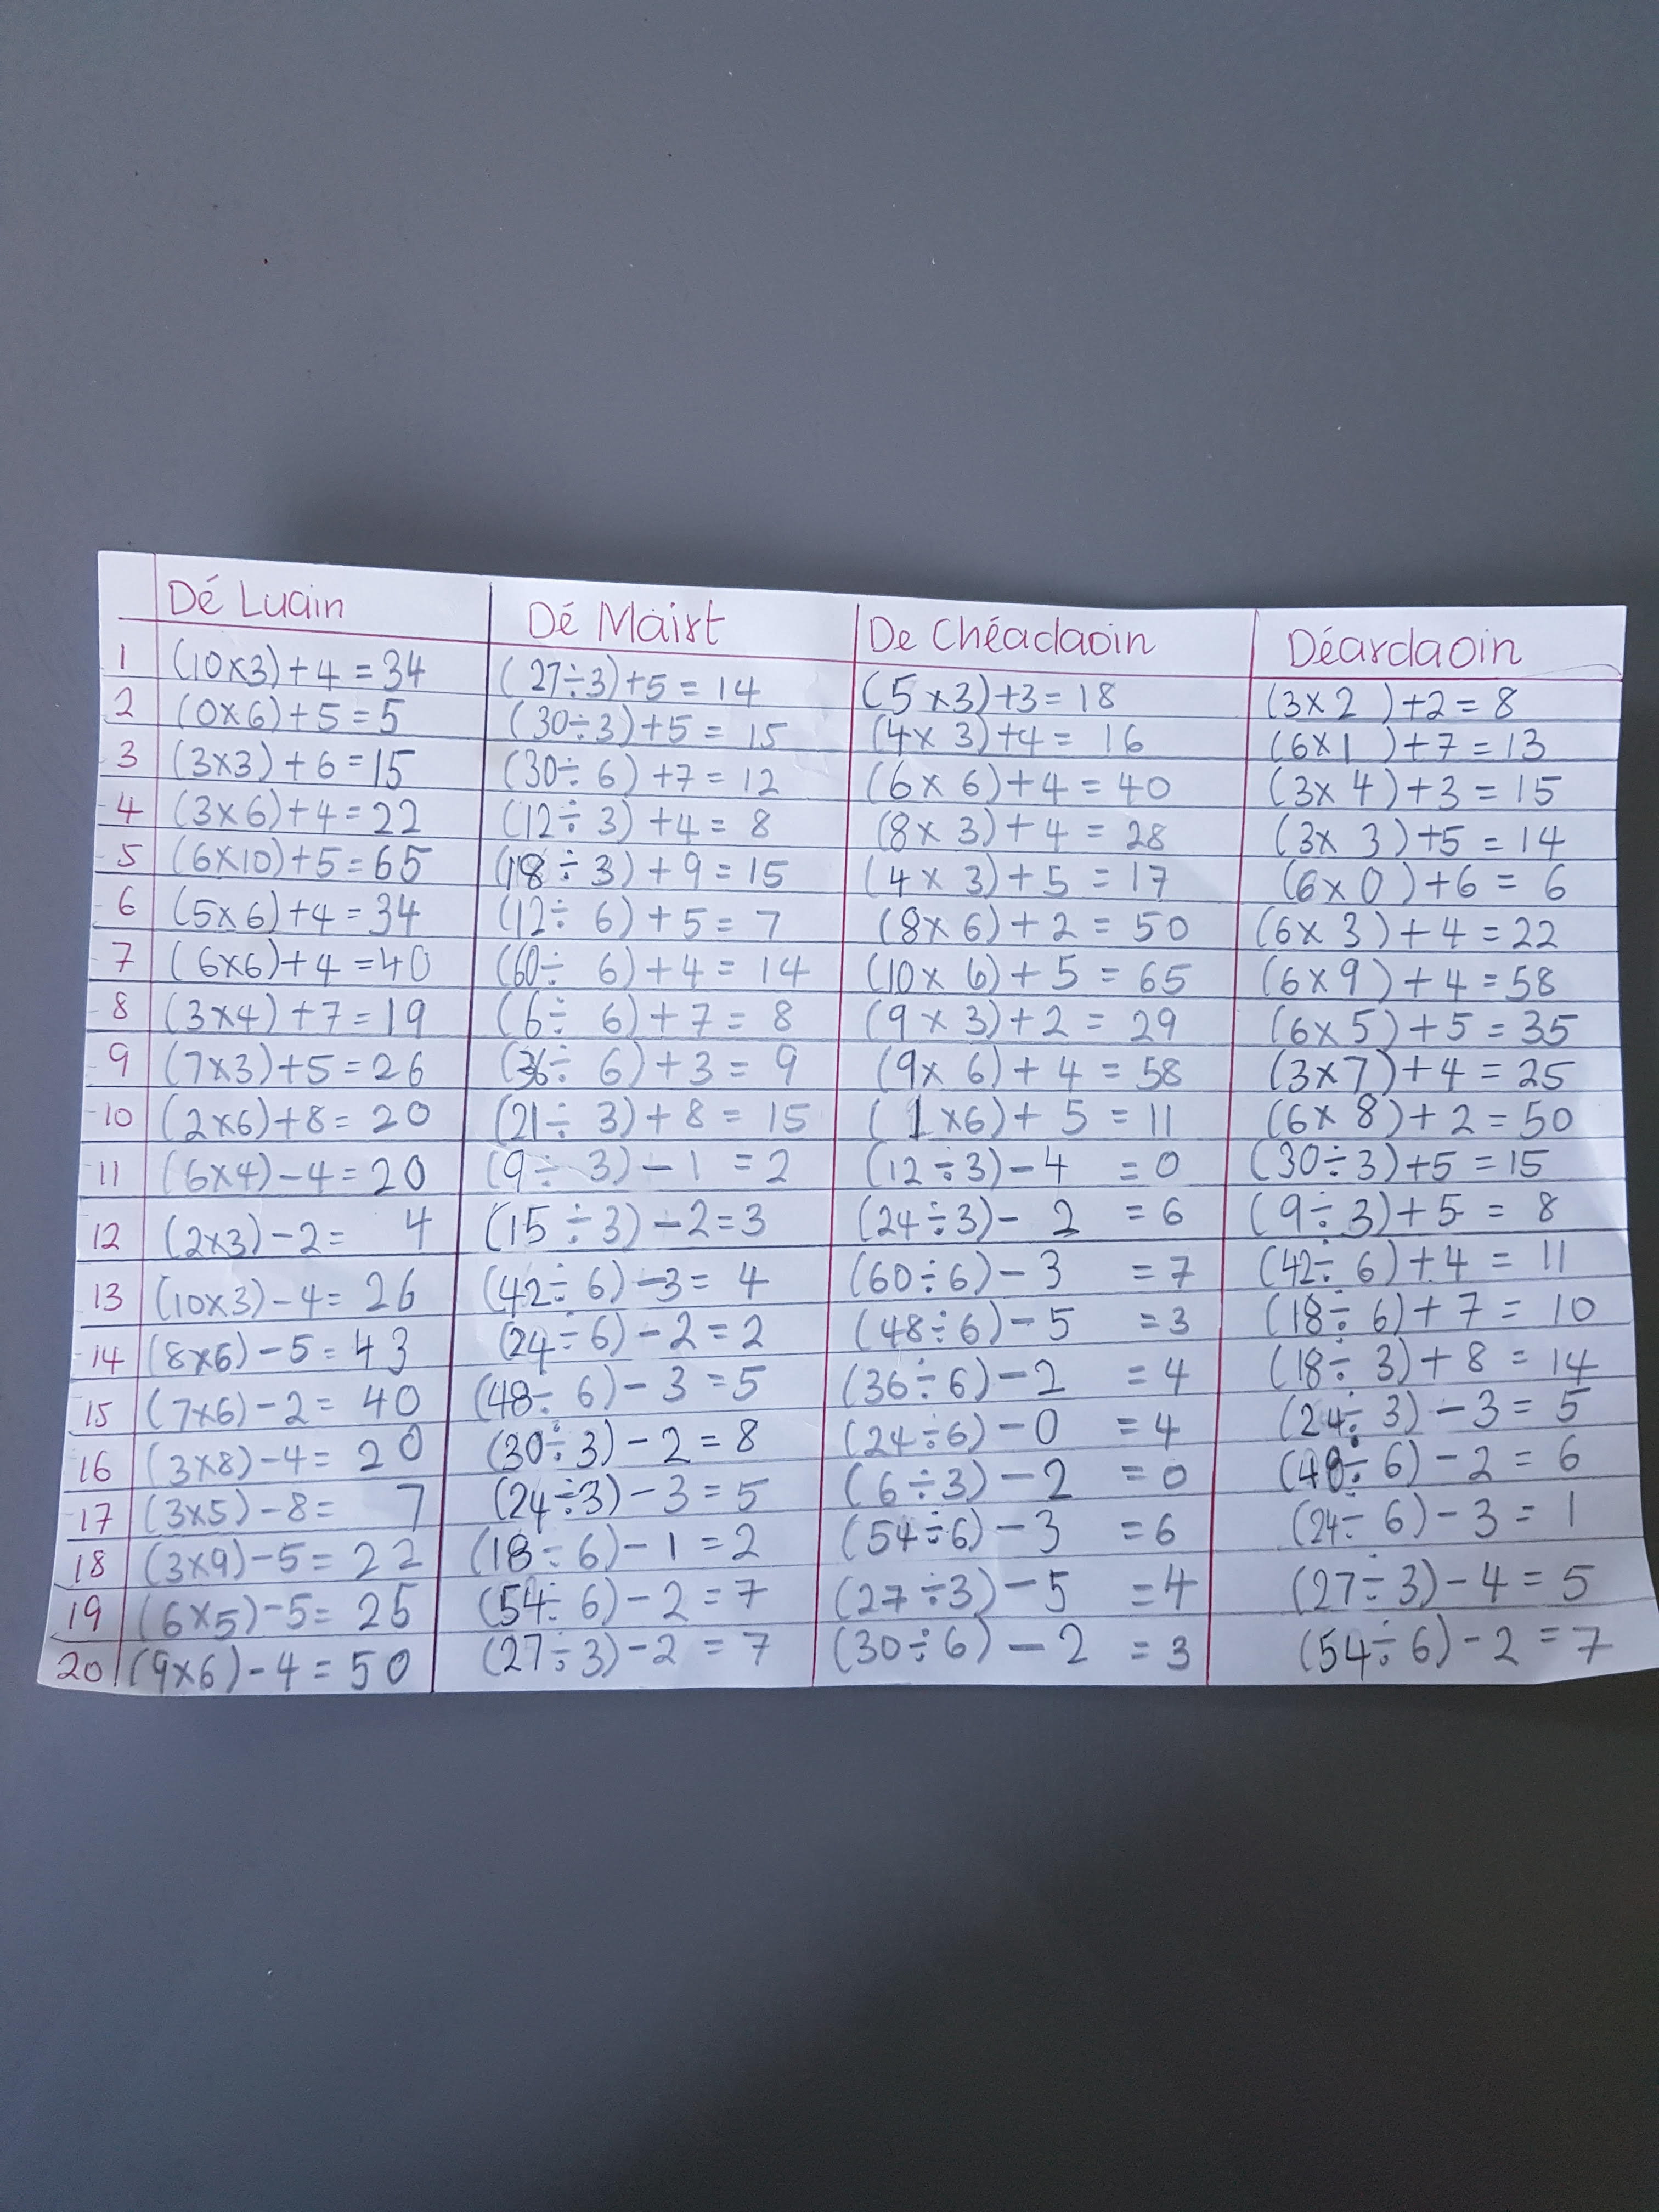 Dé Luain Dé Máirt De Chéadaoin Déardaoin
1 (10x3)+4=34 (27÷3)+5=14 (5x3)+3=18 (3x2)+2=8
2 (0x6)+5=5 (30÷3)+5=15 (4x3)+4=16 (6x1)+7=13
3 (3x3)+6=15 (30÷6)+7=12 (6x6)+4=40 (3x4)+3=15
4 (3x6)+4=22 (12÷3)+4=8 (8x3)+4=28 (3x3)+5=14
5 (6x10)+5=65 (18÷3)+9=15 (4x3)+5=17 (6x0)+6=6
6 (5x6)+4=34 (12÷6)+5=7 (8x6)+2=50 (6x3)+4=22
7 (6x6)+4=40 (60÷6)+4=14 (10x6)+5=65 (6x9)+4=58
8 (3x4)+7=19 (6÷6)+7=8 (9x3)+2=29 (6x5)+5=35
9 (7x3)+5=26 (36÷6)+3=9 (9x6)+4=58 (3x7)+4=25
10 (2x6)+8=20 (21÷3)+8=15 (1x6)+5=11 (6x8)+2=50
11 (6x4)-4=20 (9÷3)-1=2 (12÷3)-4=0 (30÷3)+5=15
12 (2x3)-2=4 (15÷3)-2=3 (24÷3)-2=6 (9÷3)+5=8
13 (10x3)-4=26 (42÷6)-3=4 (60÷6)-3=7 (42÷6)+4=11
14 (8x6)-5=43 (24÷6)-2=2 (48÷6)-5=3 (18÷6)+7=10
15 (7x6)-2=40 (48÷6)-3=5 (36÷6)-2=4 (18÷3)+8=14
16 (3x8)-4=20 (30÷3)-2=8 (24÷6)-0=4 (24÷3)-3=5
17 (3x5)-8=7 (24÷3)-3=5 (6÷3)-2=0 (48÷6)-2=6
18 (3x9)-5=22 (18÷6)-1=2 (54÷6)-3=6 (24÷6)-3=1
19 (6x5)-5=25 (54÷6)-2=7 (27÷3)-5=4 (27÷3)-4=5
20 (9x6)-4=50 (27÷3)-2=7 (30÷6)-2=3 (54÷6)-2=7